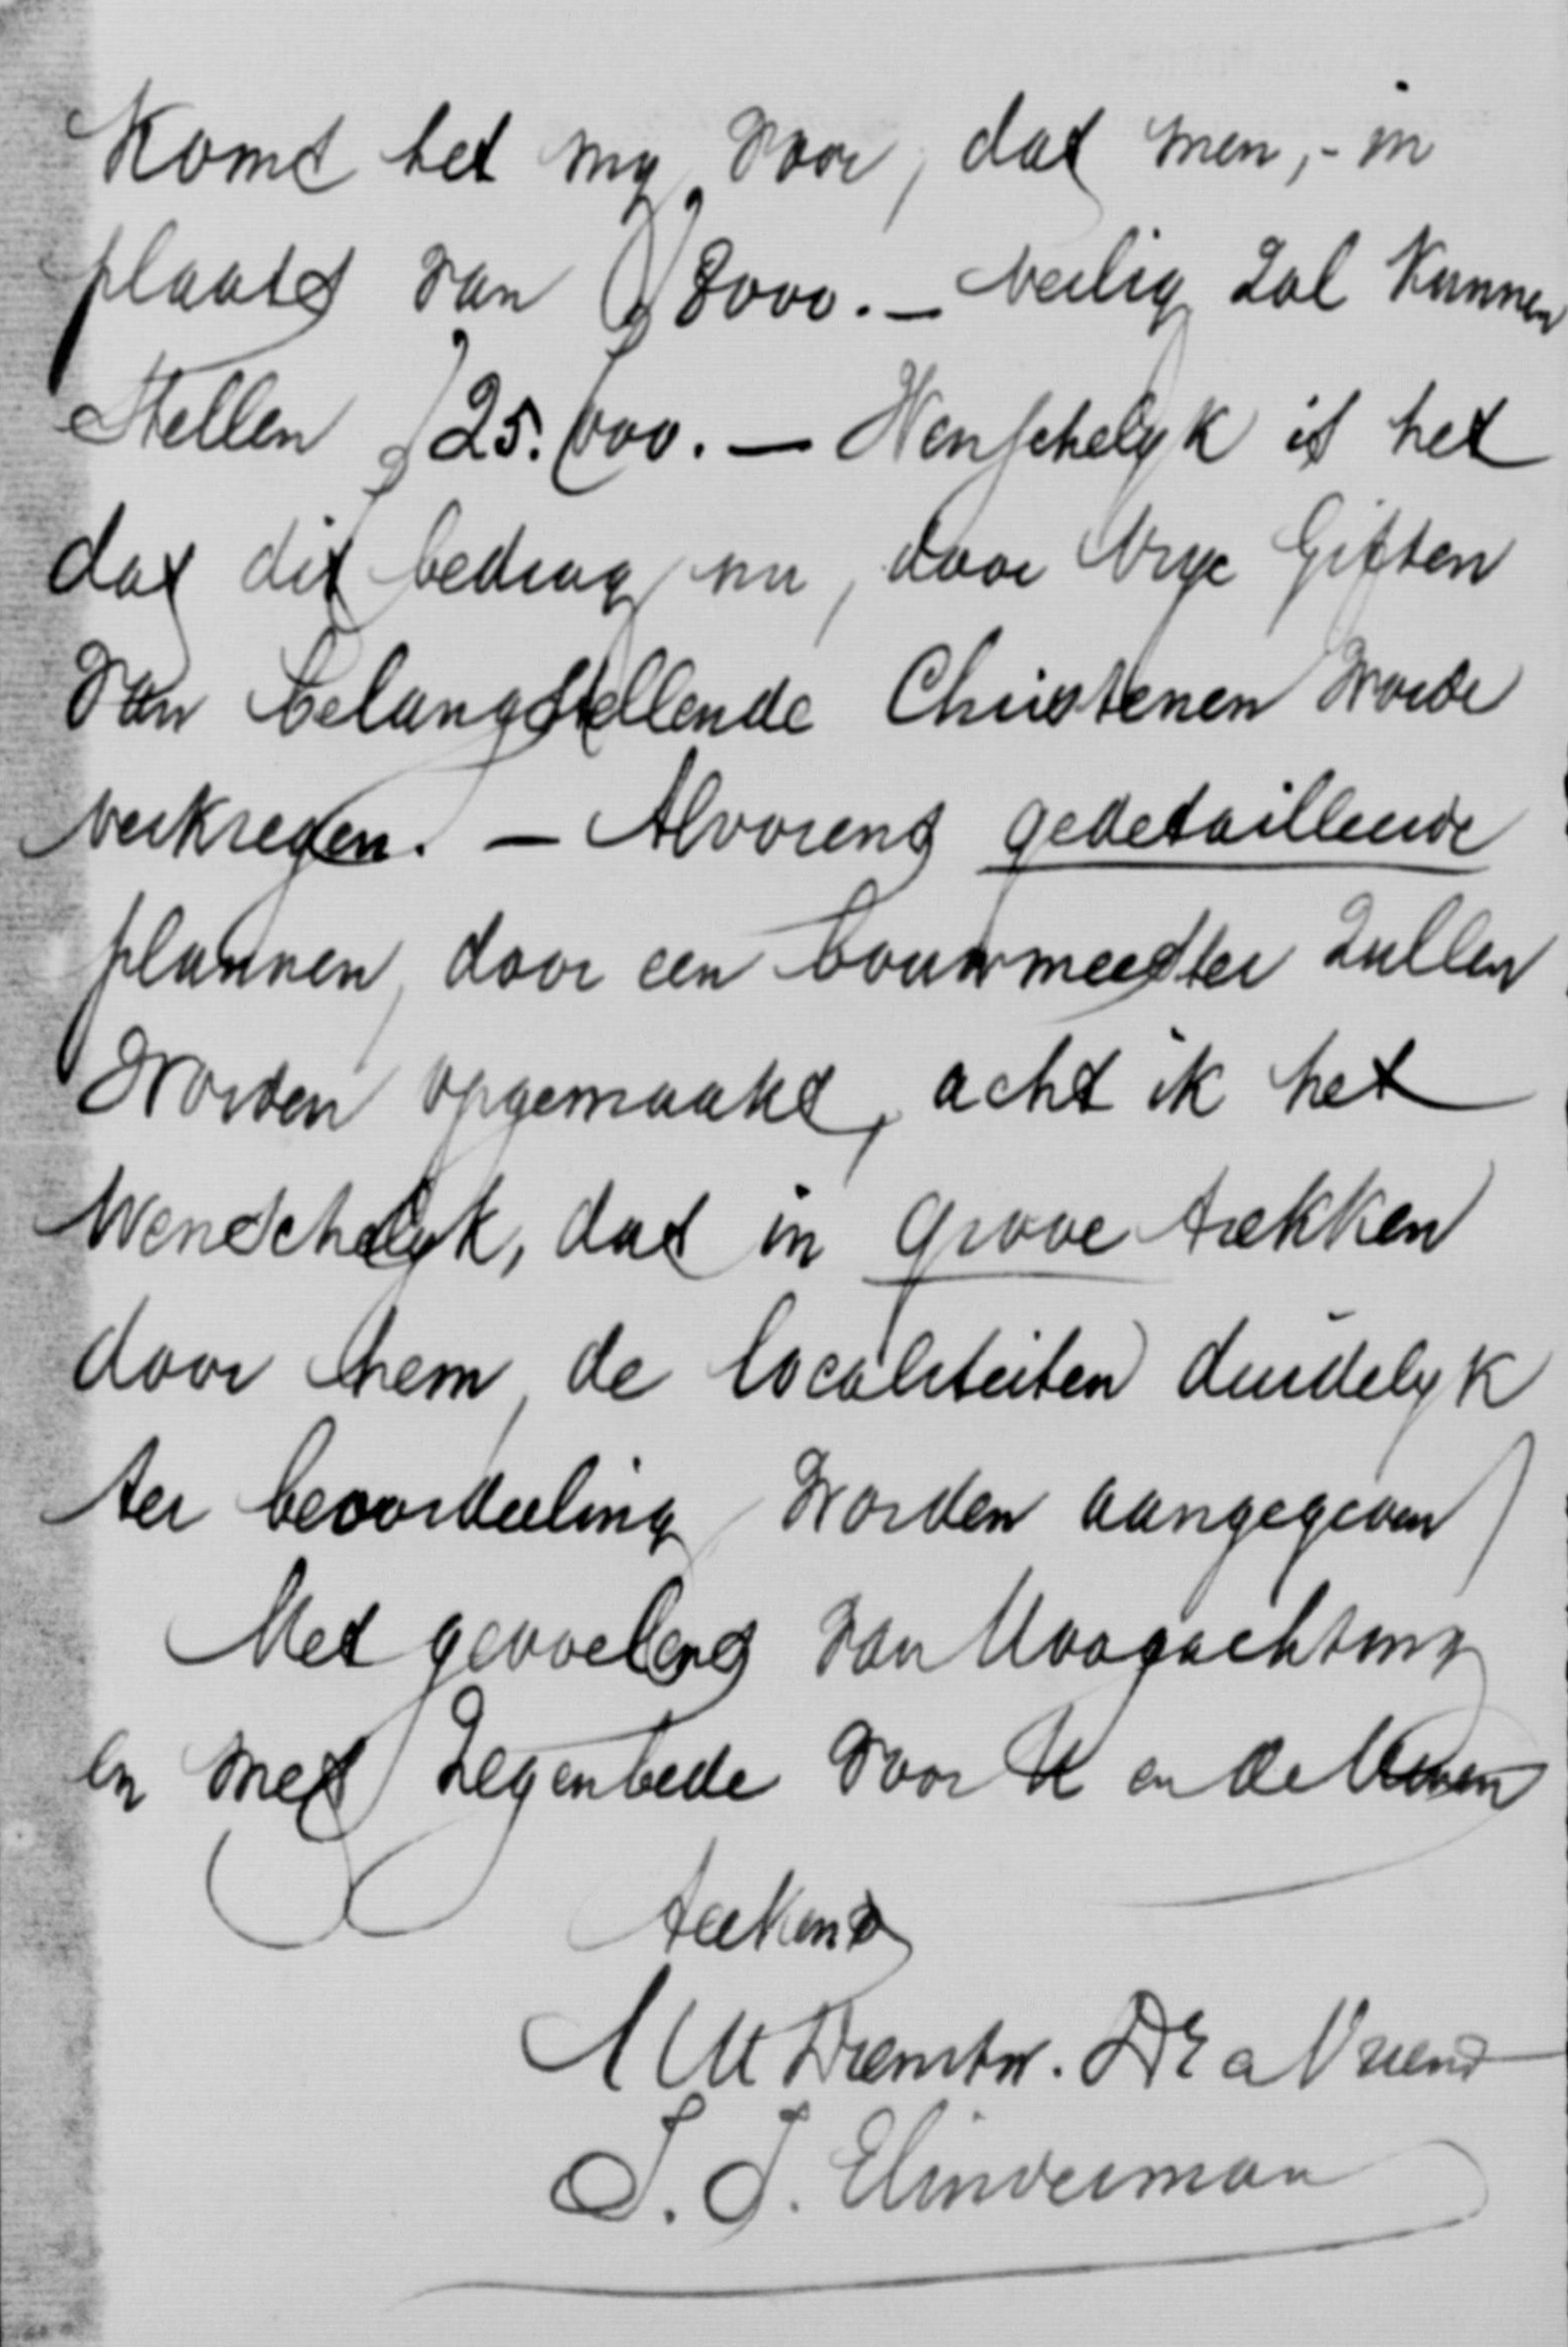 Komt het my voor, dat men, - in
plaats van ƒ 8000. — veilig zal kunnen
stellen ƒ 25.000. — Wenschelyk is het
dat dit bedrag nu, door vrye Giften
van belangstellende Christenen worde
verkregen. — Alvorens gedetailleerde
plannen, door een bouwmeester zullen
worden opgemaakt, acht ik het
wenschelyk, dat in grove trekken
door hem, de localiteiten duidelyk
ter beoordeeling worden aangegeven
Met gevoelens van Hoogachting
en met Zegenbede voor U en de Uwen
teekend
Uw Dienstw. Dr. a Vriend
J. J. Clinderman